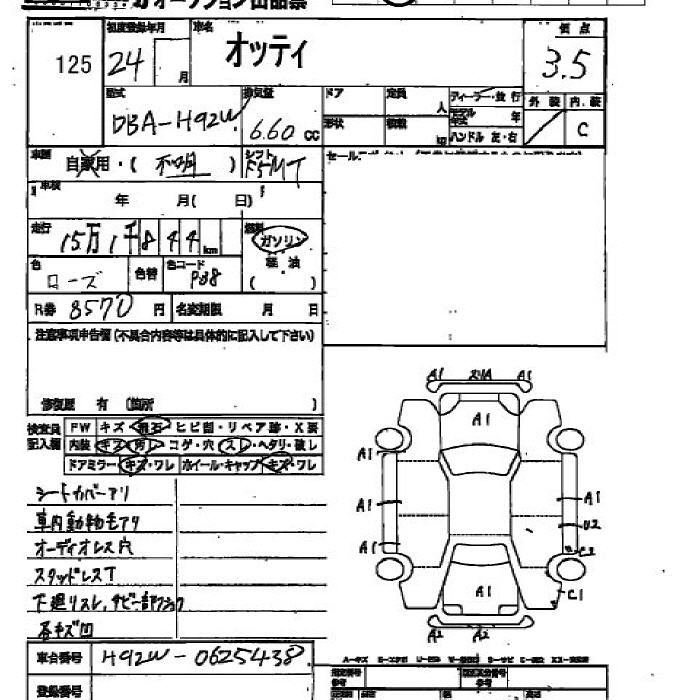 オークション出品票
125
初度登録年月
24 月
車名
オッティ
評価点
3.5
型式
DBA-H92W
排気量
6.60 CC
ドア
定員
人
形状
積載
kg
ディーラー・並行
モデル年式 年
ハンドル 左・右
外装 内装
C
車歴
自家用・( 不明 )
シフト
F5 MT
セールスポイント
車検
年 月( 日)
走行
15万1千844km
燃料
ガソリン
軽油
( )
色
ローズ
色替
色コード
P38
R券 8570 円
名変期限 月 日
注意事項申告欄(不具合内容等は具体的に記入して下さい)
修復歴 有 (箇所 )
検査員記入欄
FW キズ・飛石・ヒビ割・リペア跡・X要
内装 キズ・汚れ・コゲ・穴・スレ・ヘタリ・破レ
ドアミラー・キズ・ワレ ホイール・キャップ・キズ・ワレ
シートカバーアリ
車内動物毛アリ
オーディオレス穴
スタッドレスT
下廻リスレ、サビ一部
各キズ凹
A1 A1
A1
A1
A1 A1
U2
A1
A1 C1
A2 A2
車台番号 H92W-0625438
登録番号